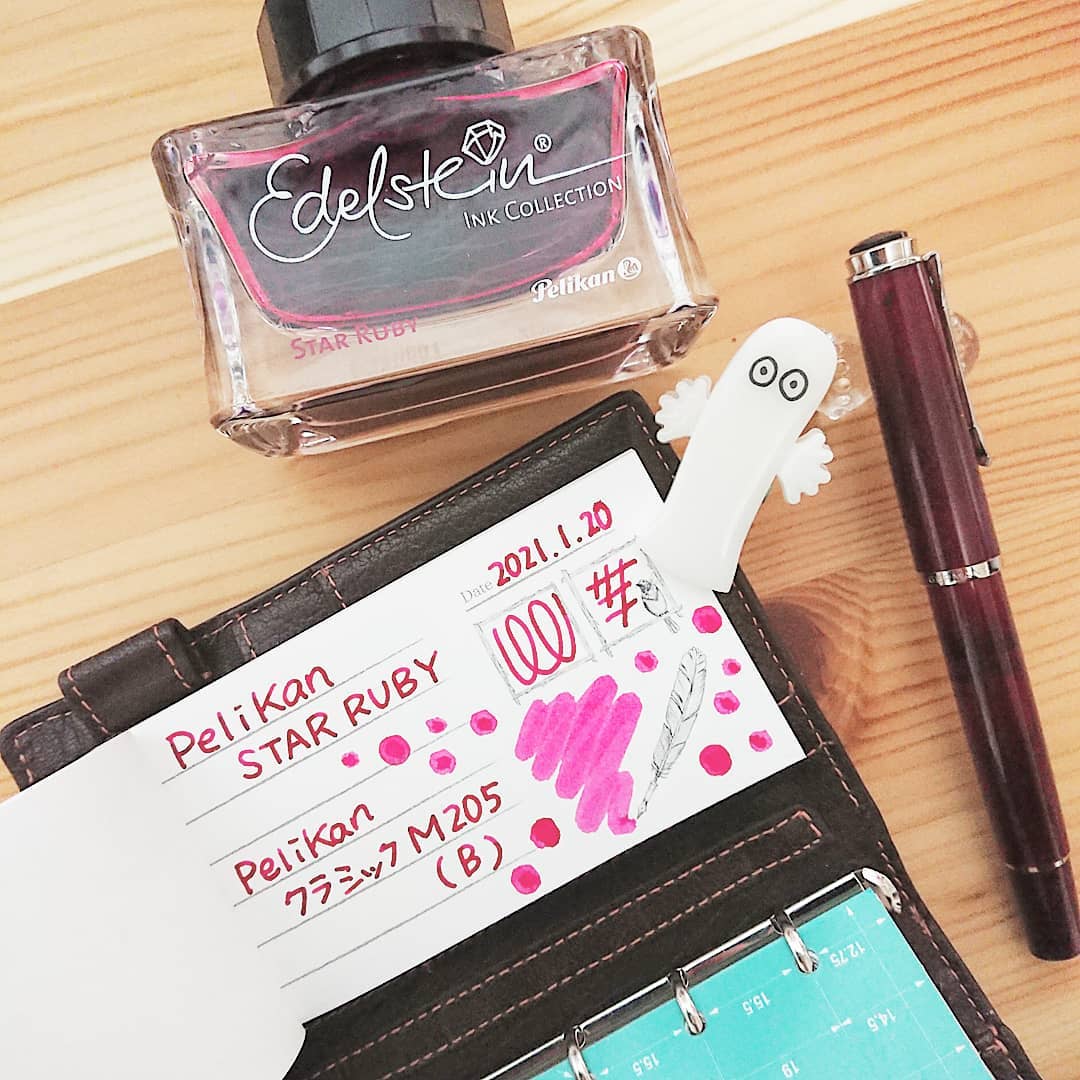 Edelstein®
INK COLLECTION
Pelikan
STAR RUBY
Date 2021.1.20
Pelikan
STAR RUBY
Pelikan
クラシック M205
(B)
12.75
15.5
14.5
15.5
19